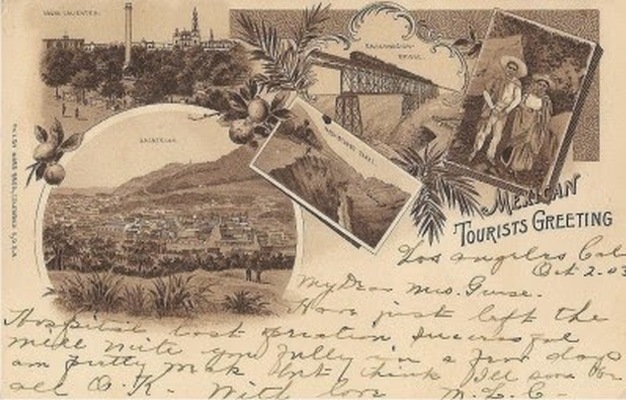 AGUAS CALIENTES.
ZACATECAS.
BRIDGE.
MEXICAN
TOURISTS GREETING
Los Angeles Cal
Oct 2. 03
My Dear Mrs.
Have just left the
Hospital last operation successful
will write you fully in a few days
am pretty weak but think I'll soon be
all O.K. With love M.E.C.